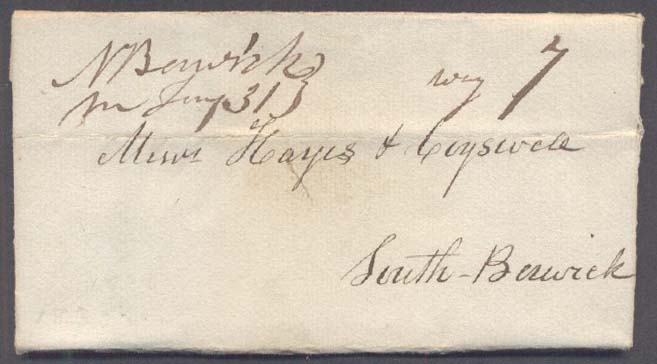 N Berwick
Me Jany 31 } way 7
Messrs Hayes & Cogswell
South-Berwick